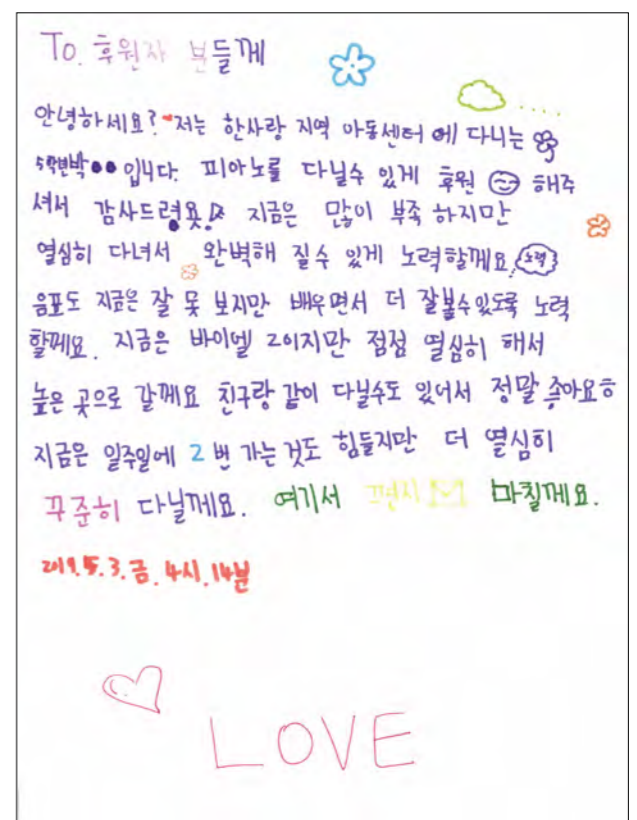 To. 후원자 분들께
안녕하세요? 저는 한사랑 지역 아동센터 에 다니는
5학년박●● 입니다. 피아노를 다닐수 있게 후원 해주
셔서 감사드려욧! 지금은 많이 부족 하지만
열심히 다녀서 완벽해 질수 있게 노력할께요. 노력
음표도 지금은 잘 못 보지만 배우면서 더 잘볼수있도록 노력
할께요. 지금은 바이엘 2이지만 점점 열심히 해서
높은 곳으로 갈께요 친구랑 같이 다닐수도 있어서 정말 좋아요ㅎ
지금은 일주일에 2 번 가는것도 힘들지만 더 열심히
꾸준히 다닐께요. 여기서 편지 마칠께요.
2019.5.3.금.4시.14분
LOVE